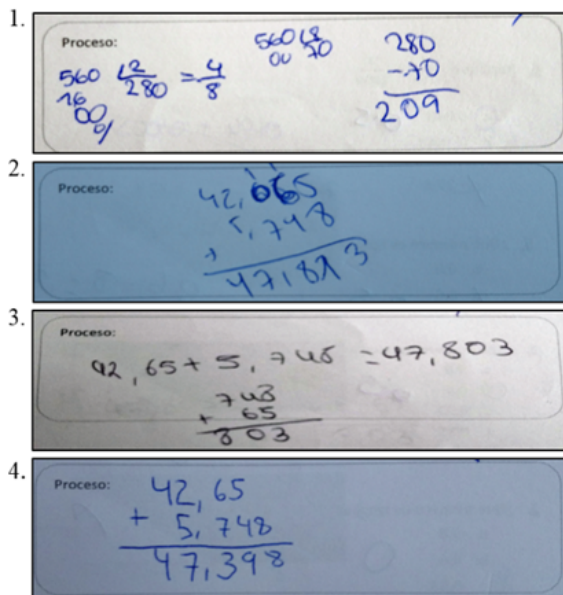 1.
Proceso:
560 L2
16 280 = 4/8
00
0/
560 L8
00 70
280
-70
209
2.
Proceso:
42,065
+ 5,748
47,813
3.
Proceso:
42,65 + 5,748 = 47,803
748
+ 65
803
4.
Proceso:
42,65
+ 5,748
47,398